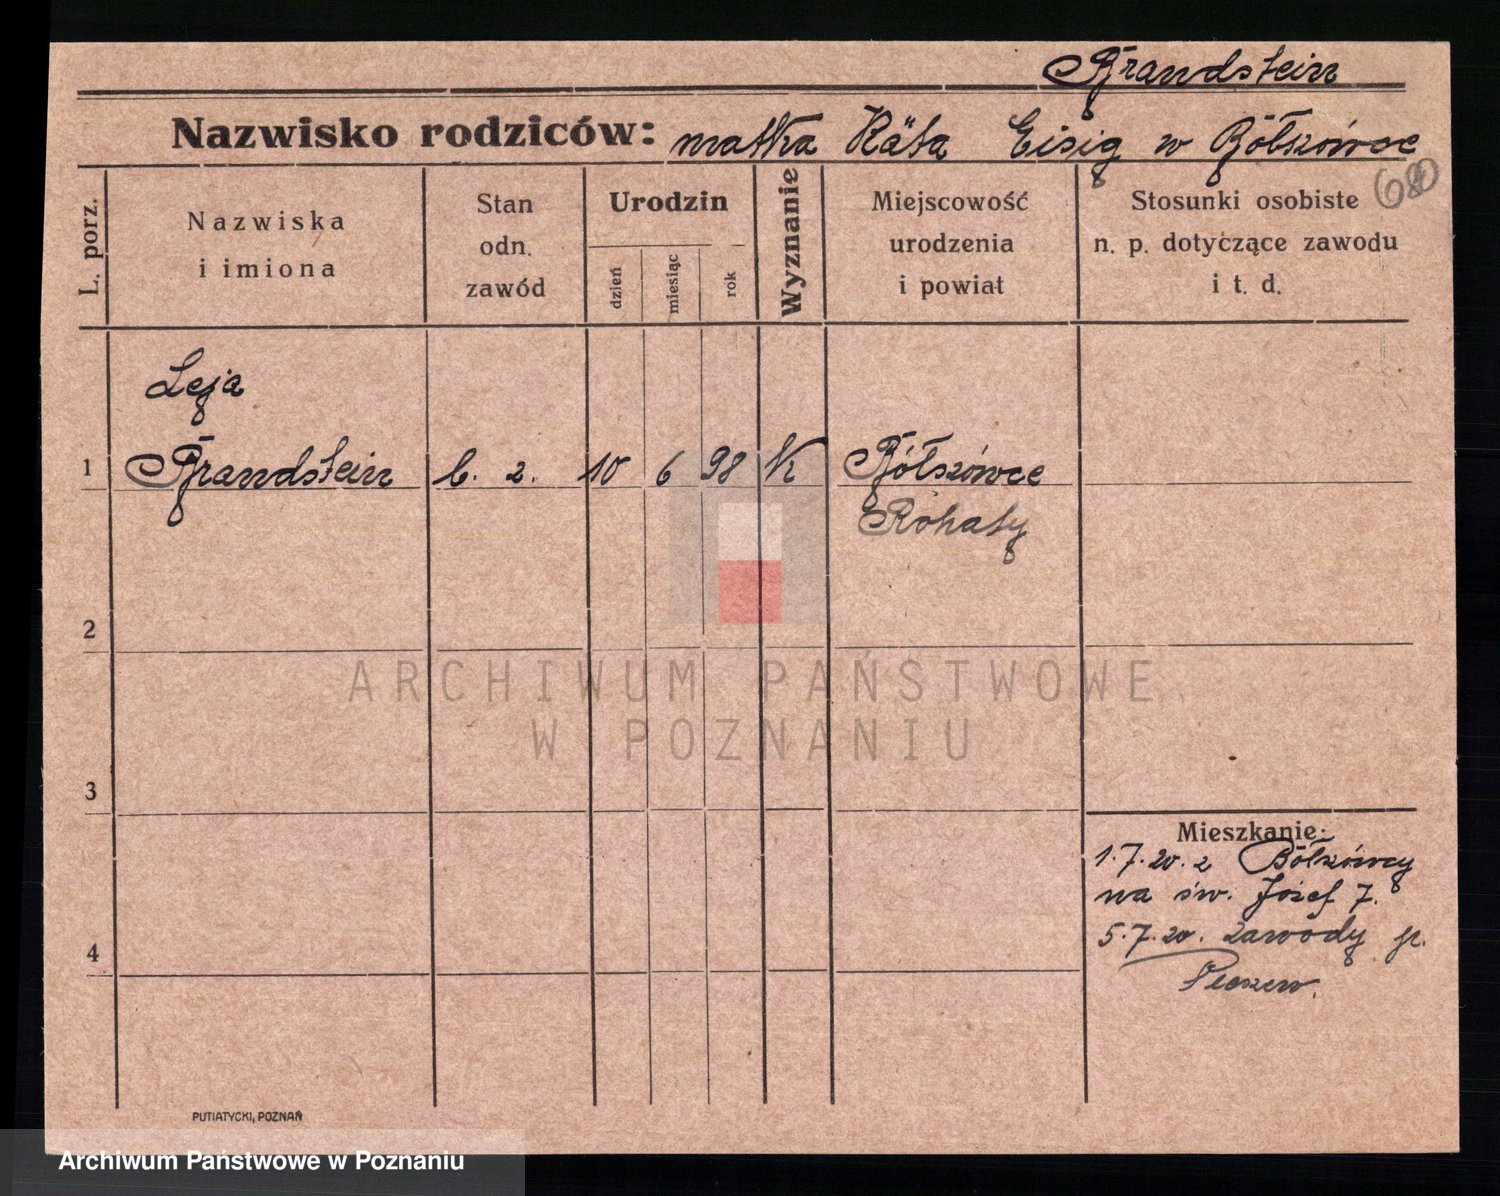 Brandstein
Nazwisko rodziców: matka Käta Eisig w Bółszówce
680
L. porz.
Nazwiska
i imiona
Stan
odn.
zawód
Urodzin
dzień
miesiąc
rok
Wyznanie
Miejscowość
urodzenia
i powiat
Stosunki osobiste
n. p. dotyczące zawodu
i t. d.
Leja
1 Brandstein b. z. 10 6 98 K Bółszówce
Rohaty
2
ARCHIWUM PAŃSTWOWE
W POZNANIU
3
Mieszkanie:
1.7.20. z Bółszówcy
na św. Józef 7.
5.7.20. Zawody p.
4
Pleszew.
PUTIATYCKI, POZNAŃ
Archiwum Państwowe w Poznaniu